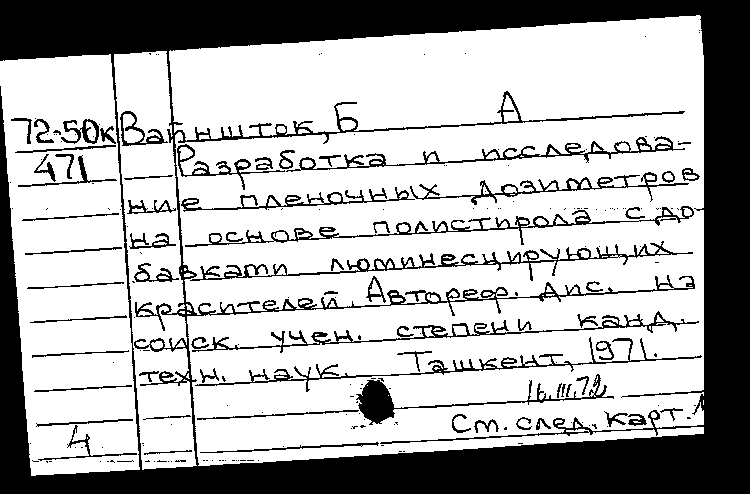 72-50к Вайншток, Б А
471 Разработка и исследова-
ние пленочных дозиметров
на основе полистирола с до-
бавками люминесцирующих
красителей. Автореф. дис. на
соиск. учен. степени канд.
техн. наук. Ташкент, 1971.
16.III.72
4 См. след. карт.